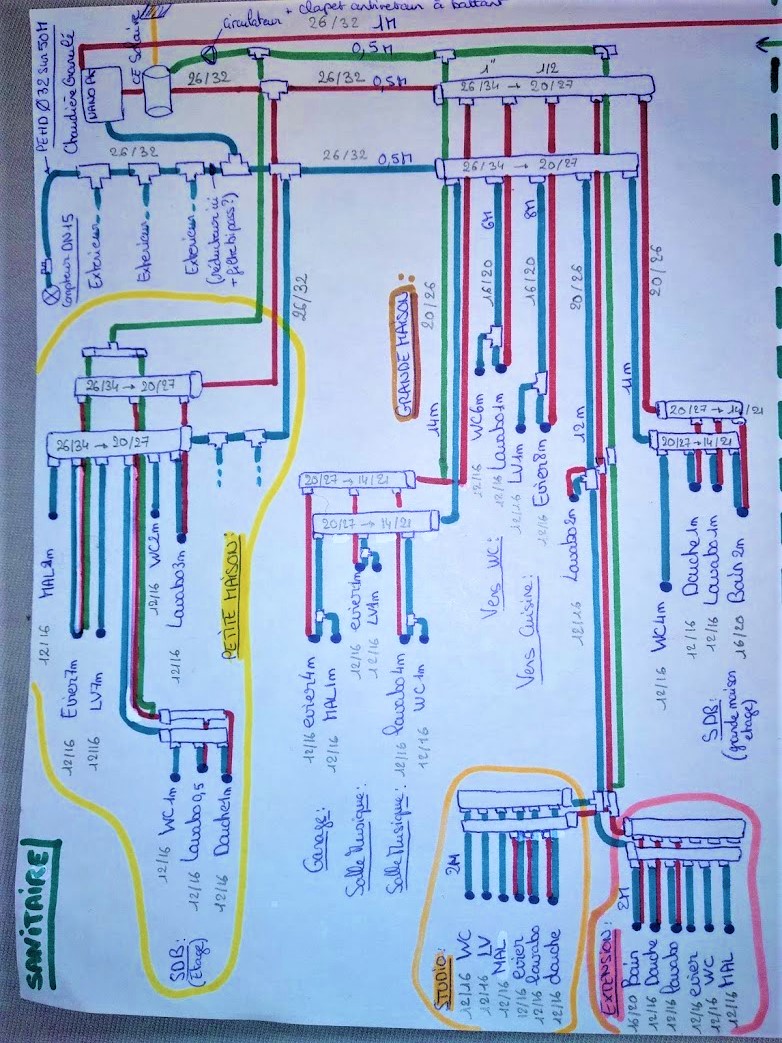 circulateur + clapet antiretour à battant
26/32 1M
0,5M
PEHD Ø 32 sur 50M
Chaudière Granulé
NANO PK
CE Solaire
26/32
26/32 0,5M
1" 1/2
26/34 → 20/27
26/32
26/32 0,5M
26/34 → 20/27
Compteur DN15
Exterieur
Exterieur
Exterieur
(Réducteur ici
+ filtre bipass?)
26/32
GRANDE MAISON:
20/26
14m
16/20 6M
16/20 8M
20/26
12m
20/26
11m
26/34 → 20/27
26/34 → 20/27
12/16 MAL
12/16 Evier 7m
12/16 LV 7m
12/16 WC 2m
12/16 Lavabo 3m
PETITE MAISON:
12/16 WC 1m
12/16 Lavabo 0,5
12/16 Douche 1m
SDB:
(Etage)
20/27 → 14/21
20/27 → 14/21
12/16 evier 4m
12/16 MAL 1m
Garage:
12/16 evier 1m
12/16 LV 1m
Salle Musique:
12/16 Lavabo 4m
12/16 WC 1m
Salle Musique:
12/16 WC 6m
12/16 Lavabo 1m
Vers WC:
12/16 LV 1m
12/16 Evier 8m
Vers Cuisine:
12/16 Lavabo 2m
20/27 → 14/21
20/27 → 14/21
12/16 WC 4m
12/16 Douche 1m
12/16 Lavabo 1m
16/20 Bain 2m
SDB:
(grande maison
étage)
STUDIO:
2M
12/16 WC
12/16 LV
12/16 MAL
12/16 evier
12/16 Lavabo
12/16 douche
EXTENSION:
2M
16/20 Bain
12/16 Douche
12/16 Lavabo
12/16 evier
12/16 WC
12/16 MAL
SANITAIRE